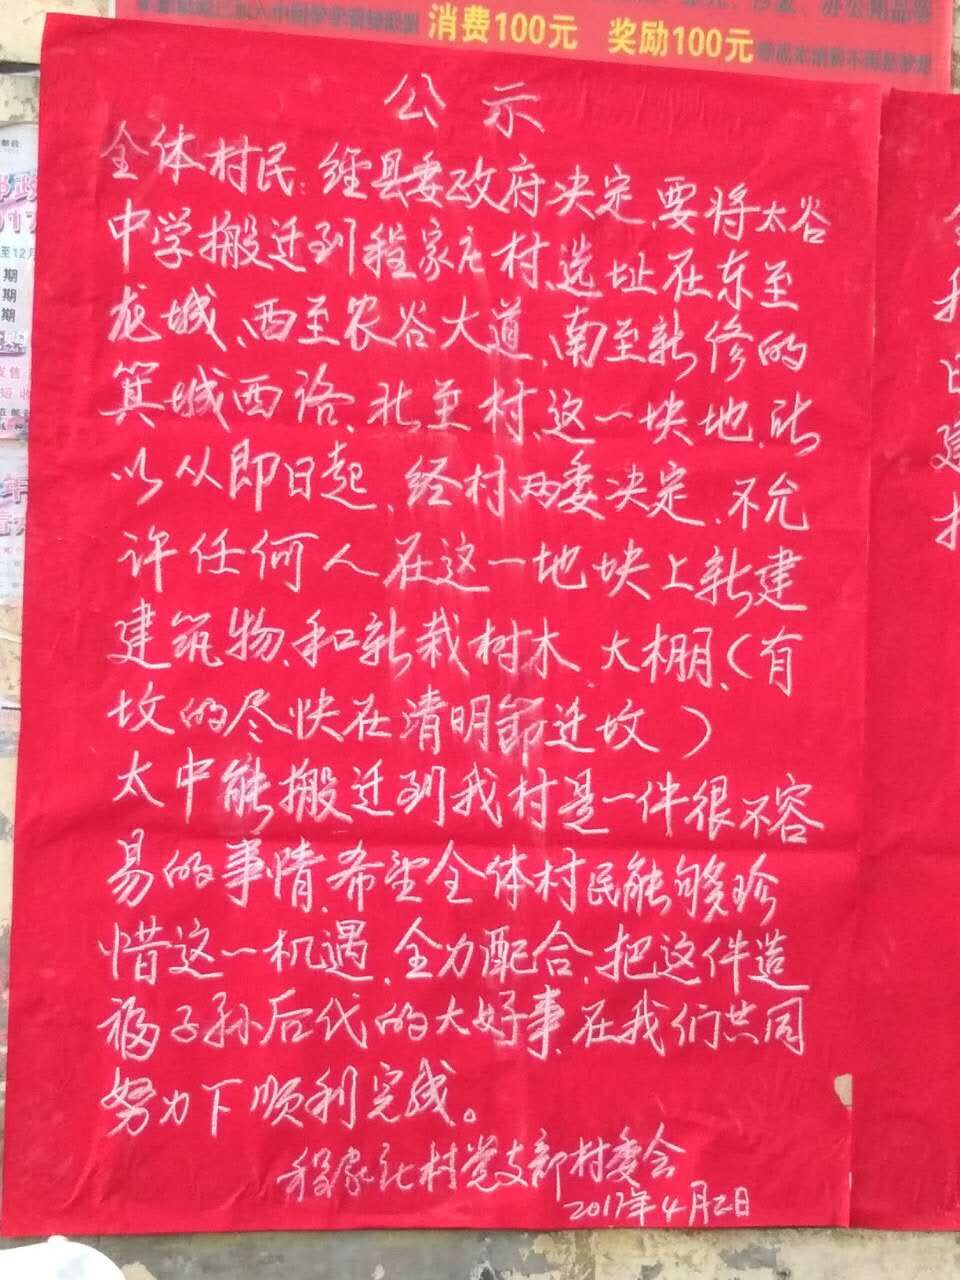 消费100元 奖励100元
公示
全体村民：经县委政府决定，要将太谷
中学搬迁到程家庄村，选址在东至
龙城、西至农谷大道、南至新修的
箕城西路、北至村，这一块地，所
以从即日起，经村两委决定，不允
许任何人在这一地块上新建
建筑物、和新栽树木、大棚、（有
坟的尽快在清明节迁坟）
太中能搬迁到我村是一件很不容
易的事情，希望全体村民能够珍
惜这一机遇，全力配合，把这件造
福子孙后代的大好事，在我们共同
努力下顺利完成。
程家庄村党支部村委会
2017年4月2日
至12月
期
期
期